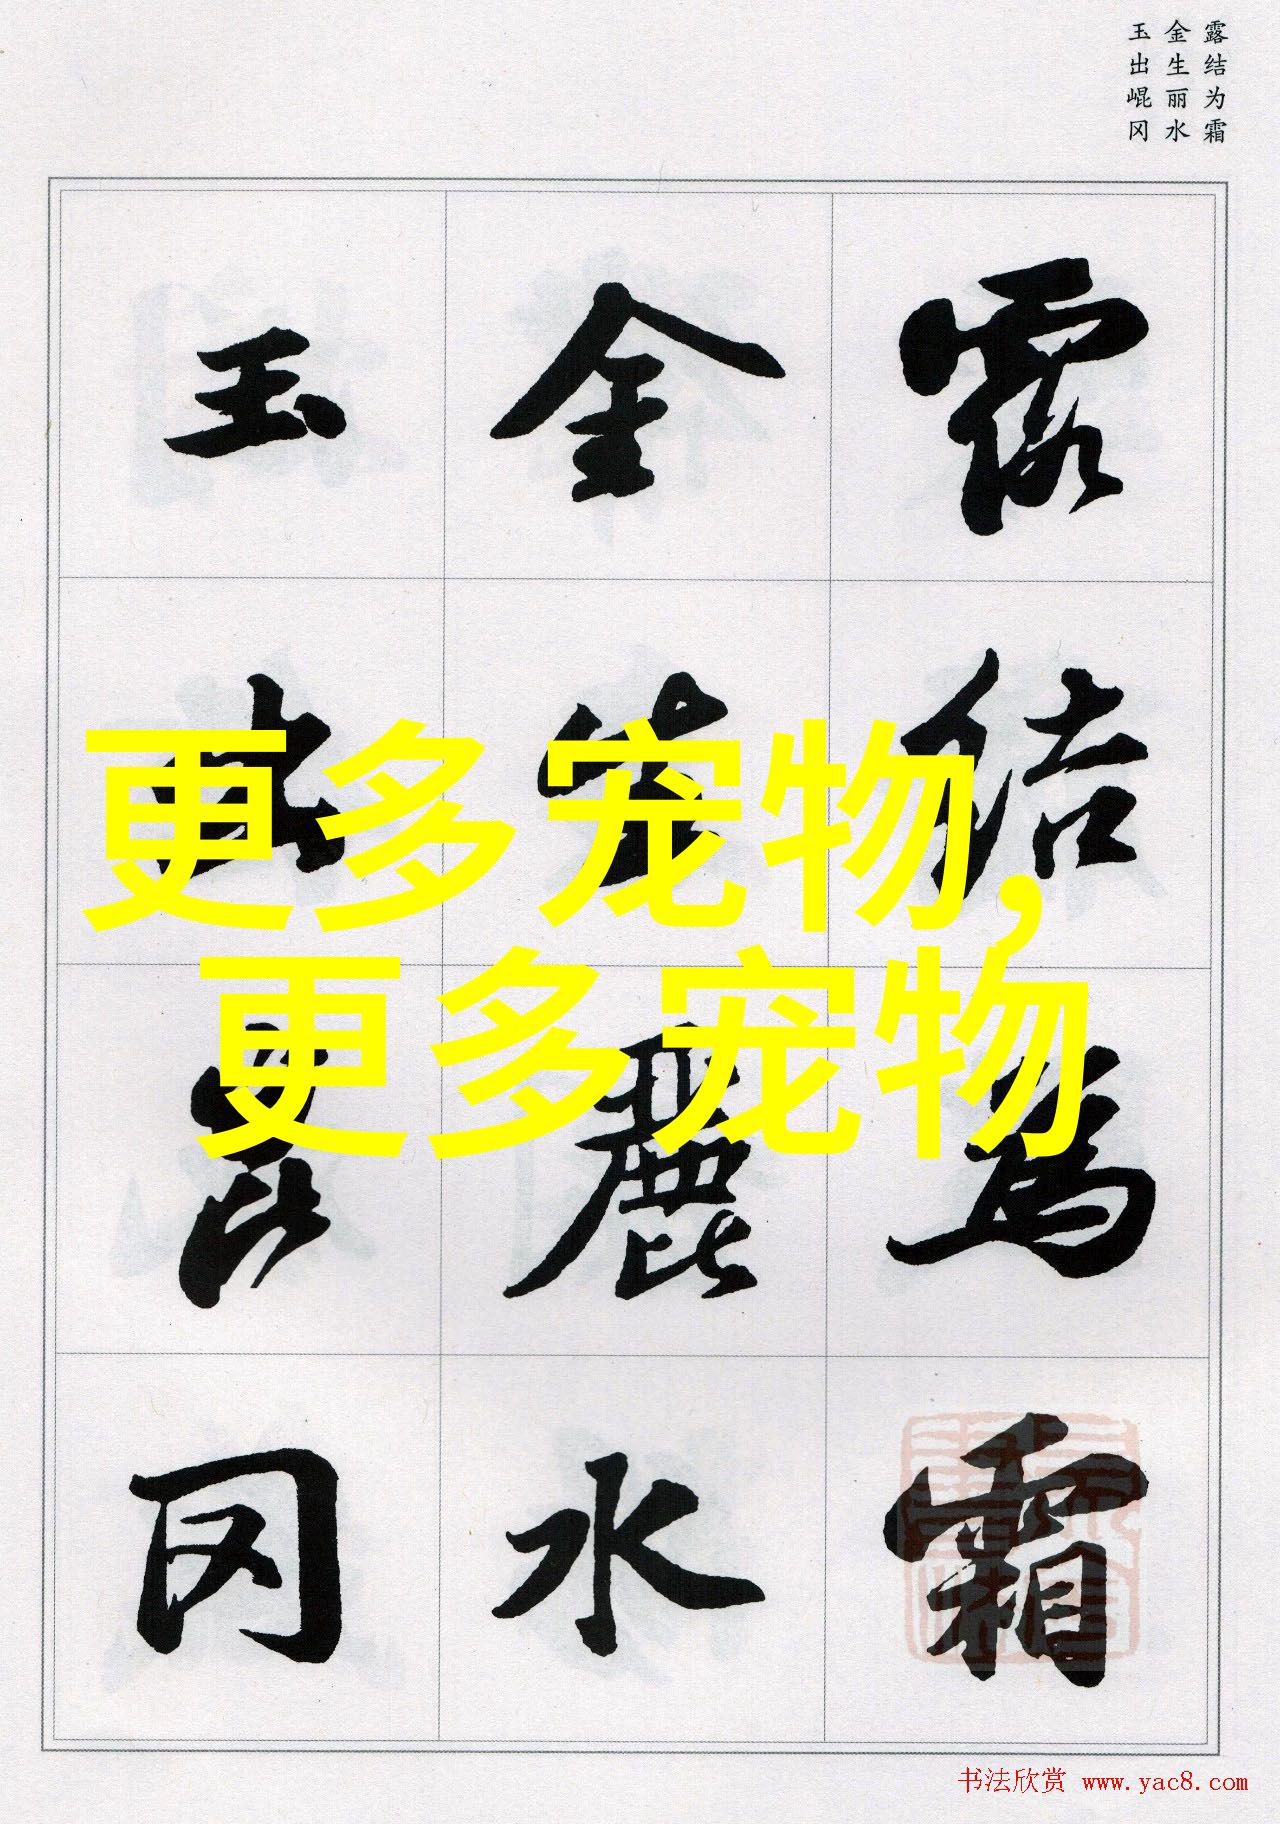 露结为霜
金生丽水
玉出崐冈
露结为霜
金生麗水
玉出崑冈
更多宠物,
更多宠物
书法欣赏 www.yac8.com